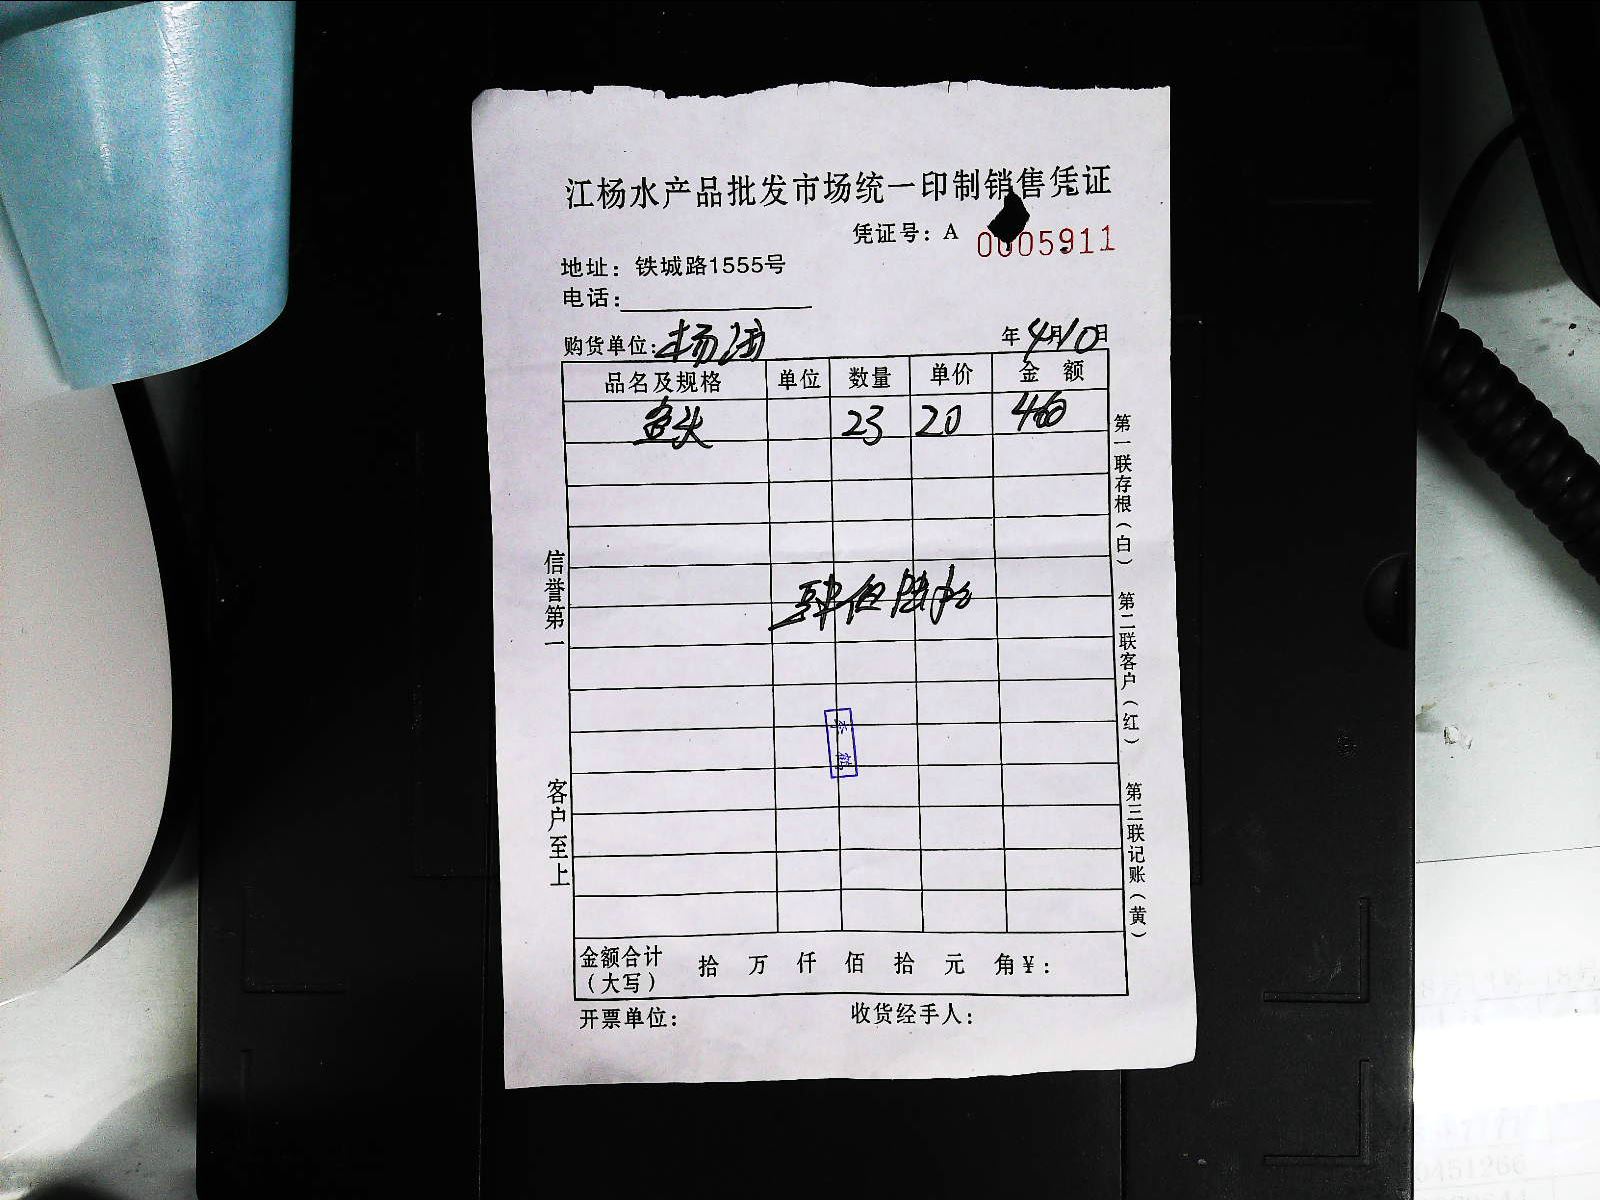 江杨水产品批发市场统一印制销售凭证
凭证号：A 0005911
地址：铁城路1555号
电话：
购货单位：杨 年4月10日
品名及规格 单位 数量 单价 金 额
鱼头 23 20 460
肆佰陆拾
信誉第一
客户至上
第一联存根（白）
第二联客户（红）
第三联记账（黄）
金额合计（大写） 拾 万 仟 佰 拾 元 角￥：
开票单位： 收货经手人：